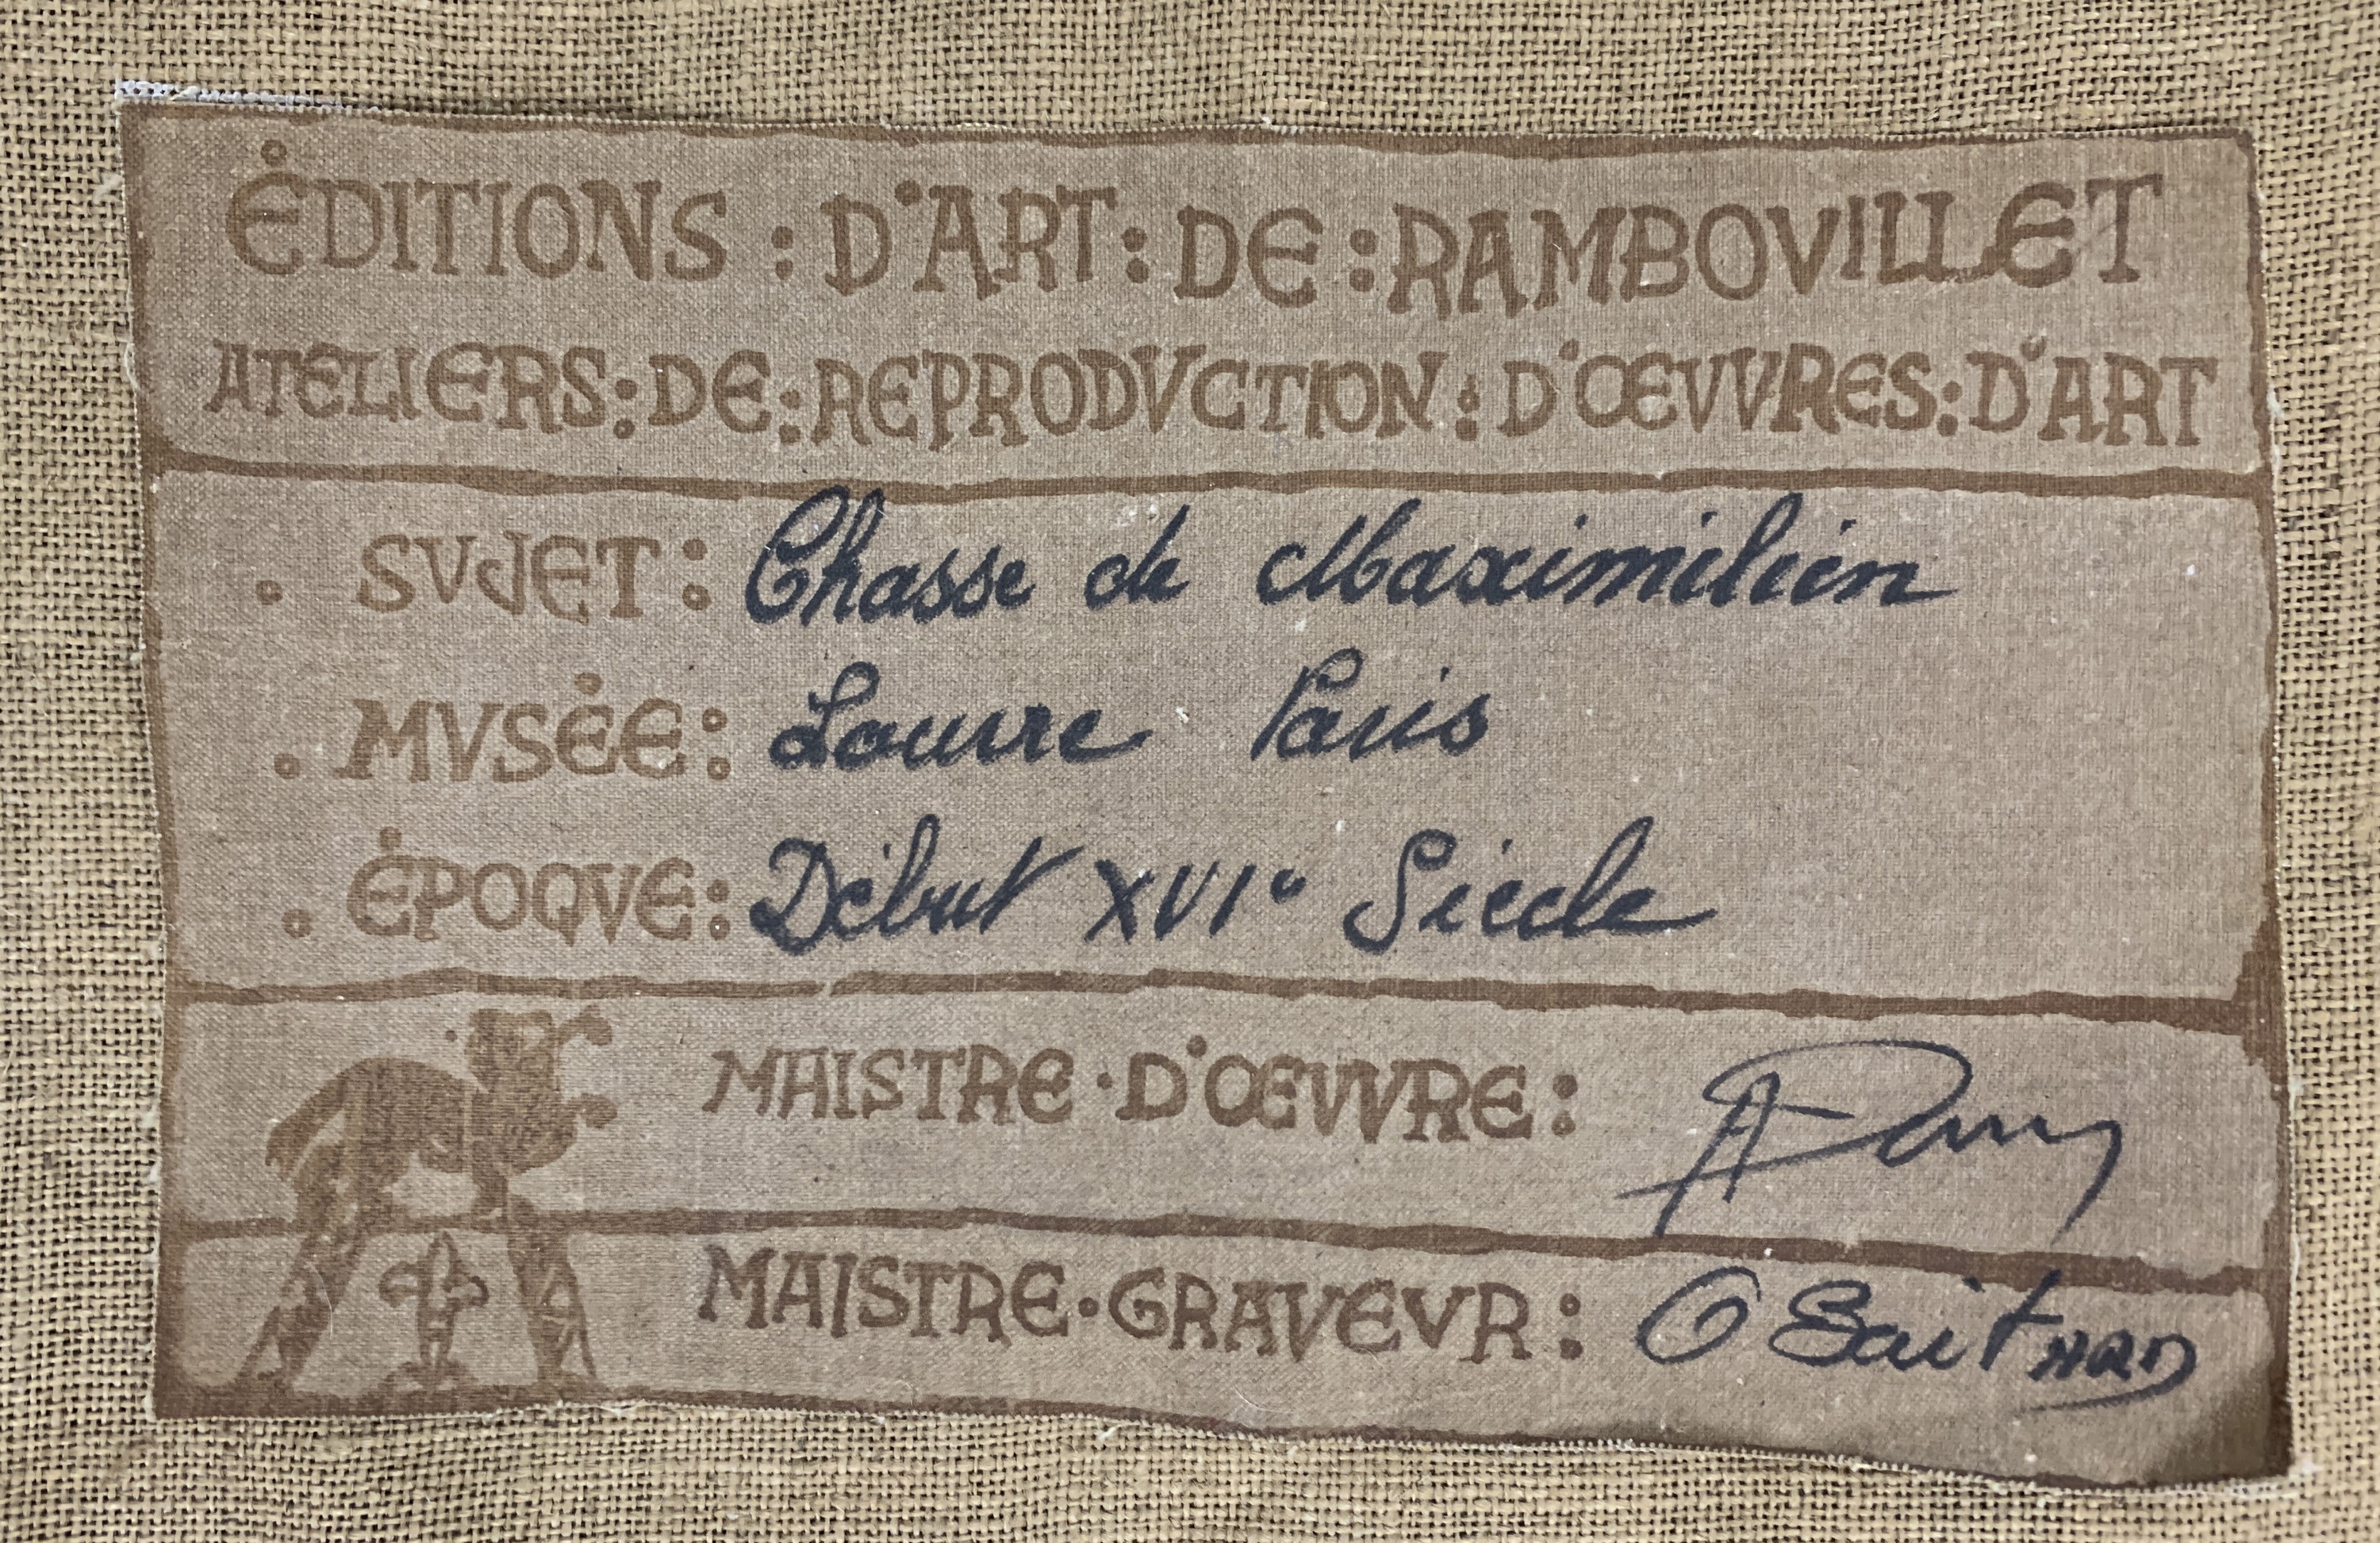 ÉDITIONS : D'ART : DE : RAMBOVILLET
ATELIERS : DE : REPRODVCTION : D'ŒVVRES : D'ART
. SVJET : Chasse de Maximilien
. MVSÉE : Louvre Paris
. ÉPOQVE : Début XVIe Siècle
MAISTRE · D'ŒVVRE :
MAISTRE · GRAVEVR :